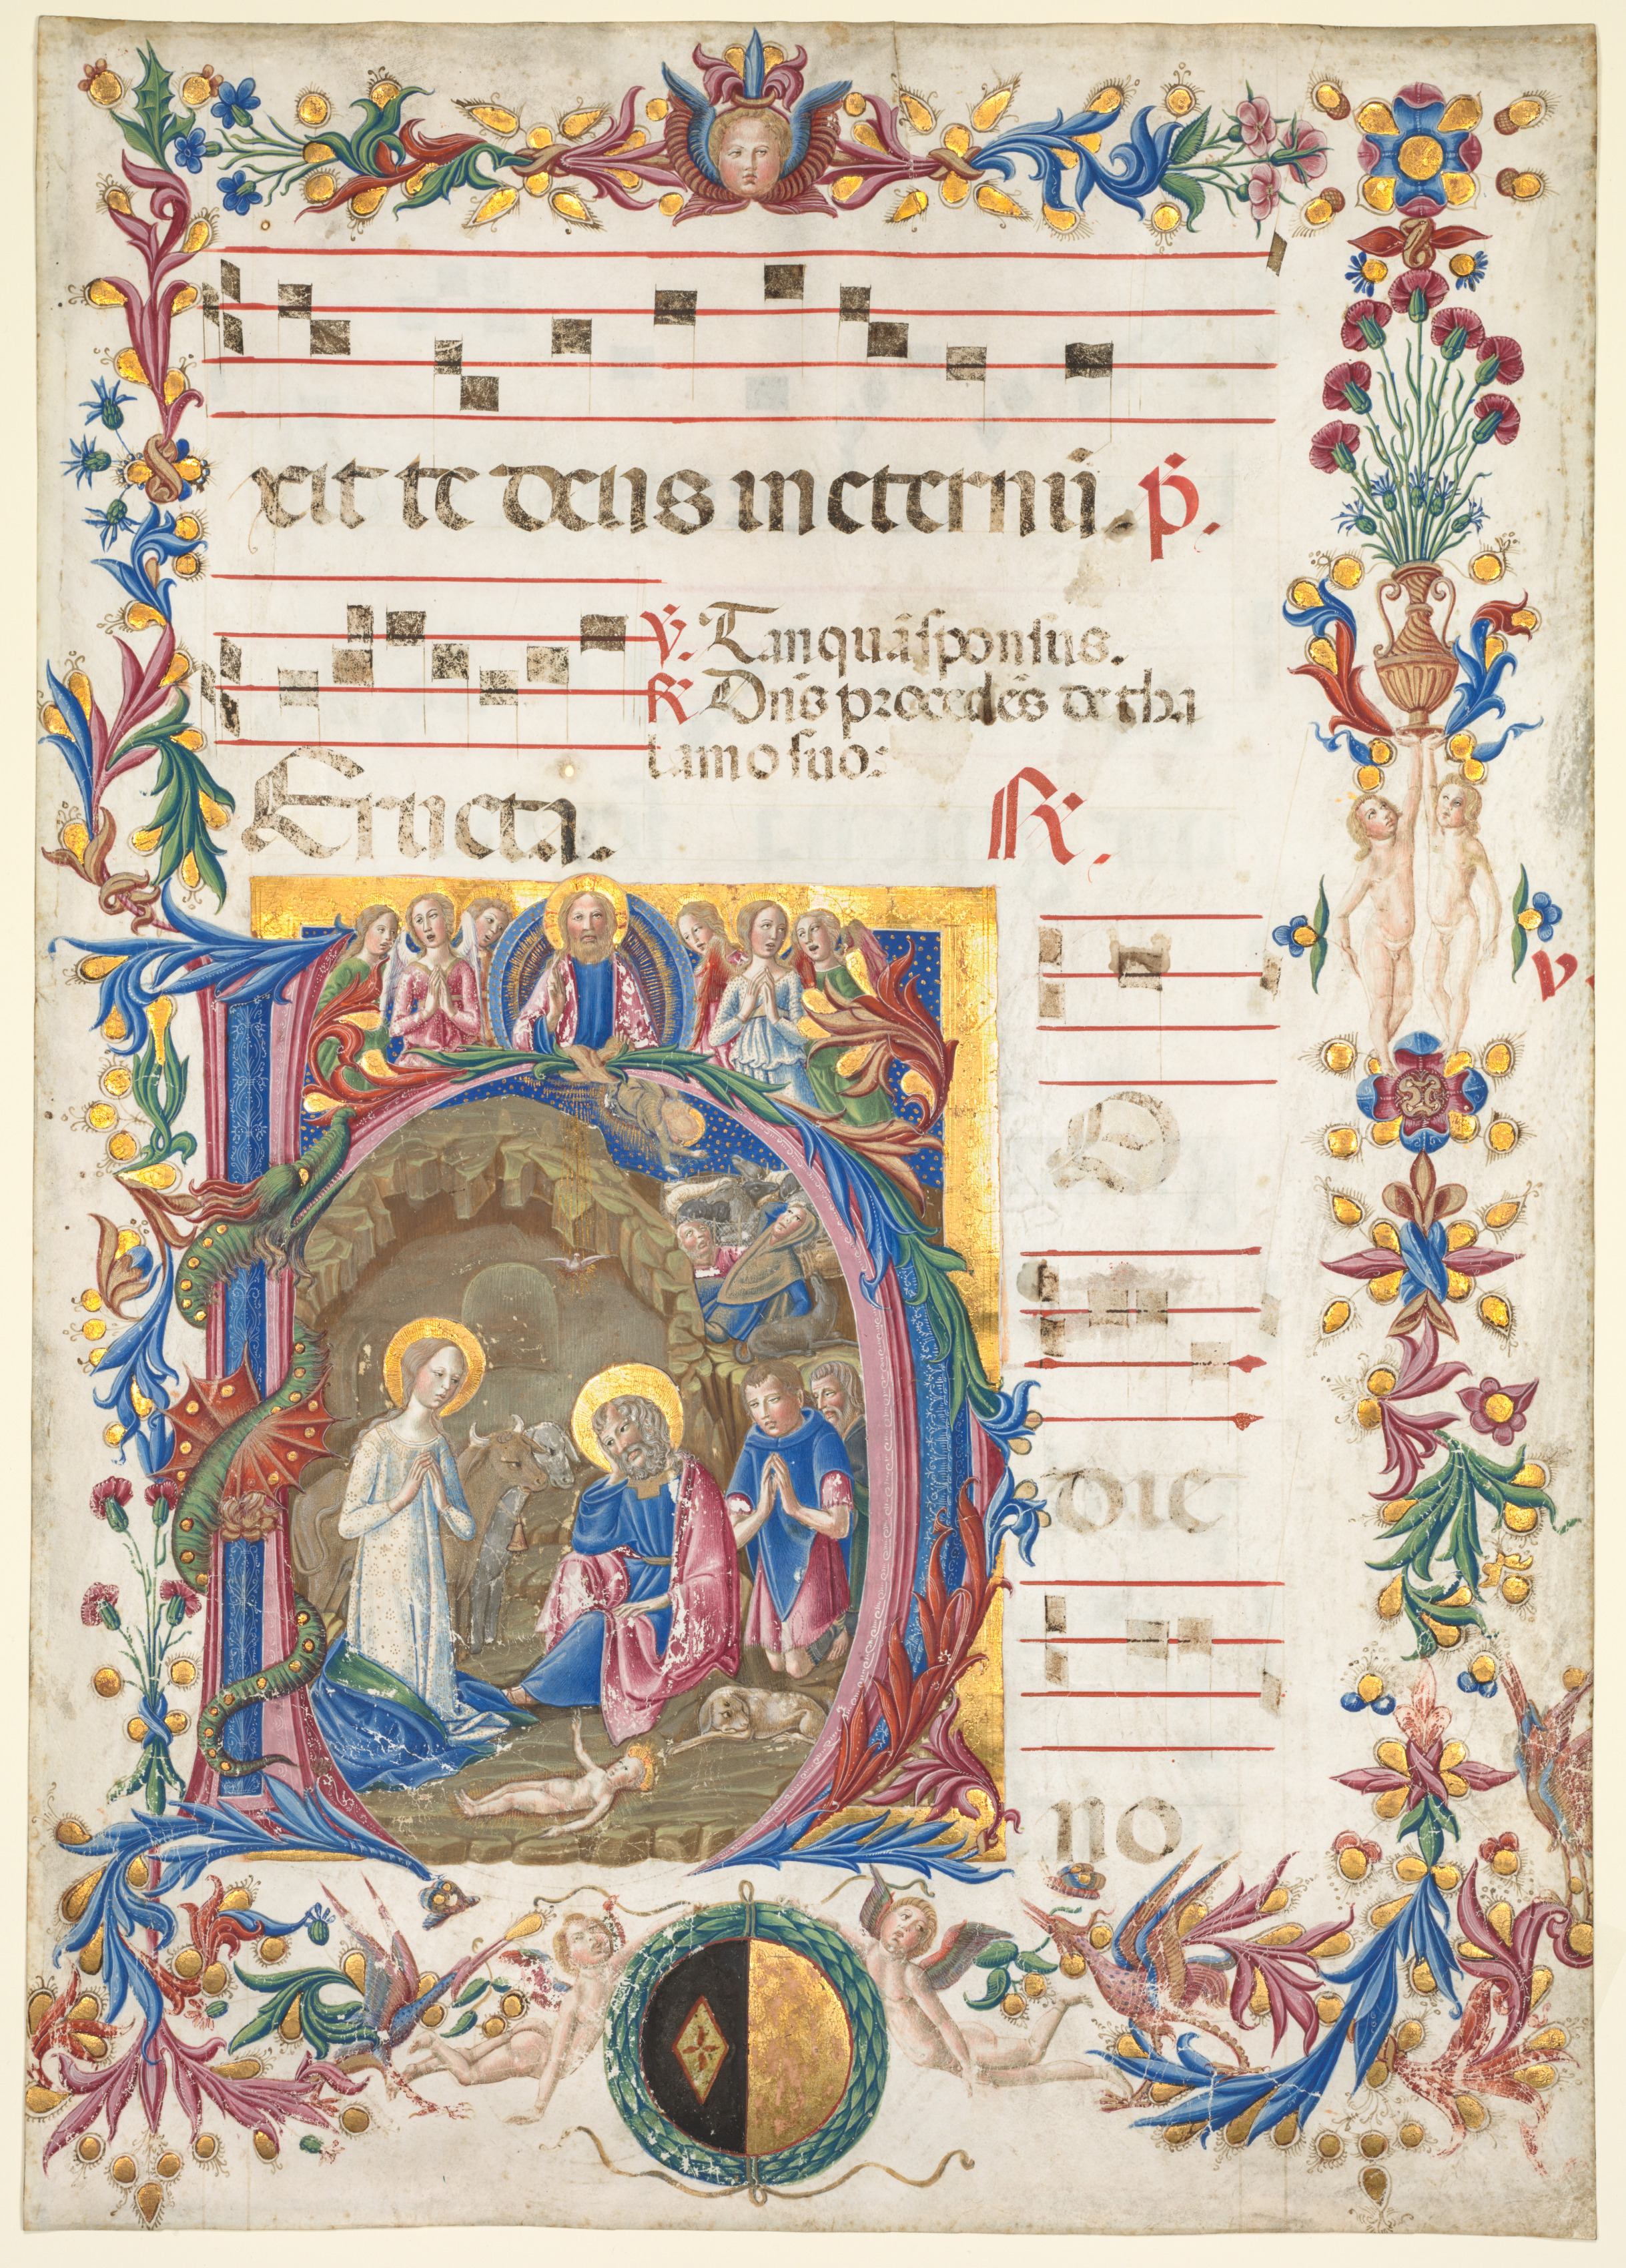 xit te deus in eternū. p̄.
v̄. Tanquā sponsus.
R̄ Dn̄s procedēs de tha
lamo suo:
Eructa. R̄.
H
O
v.
die
no